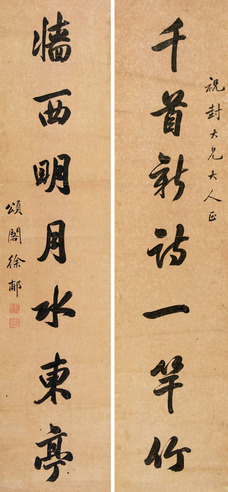 祝封大兄大人正
千首新詩一竿竹
牆西明月水東亭
頌閣徐郙